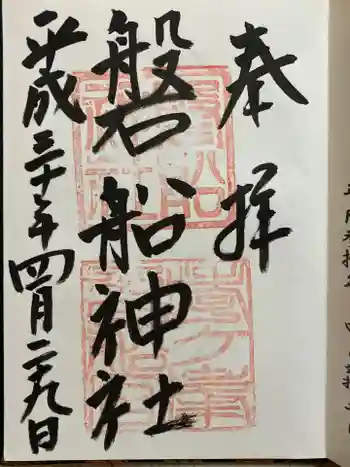 奉拝
磐船神社
平成三十年四月二十九日